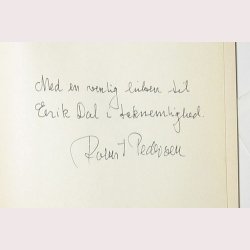 Med en venlig hilsen til
Erik Dal i taknemlighed.
Robert Pedersen